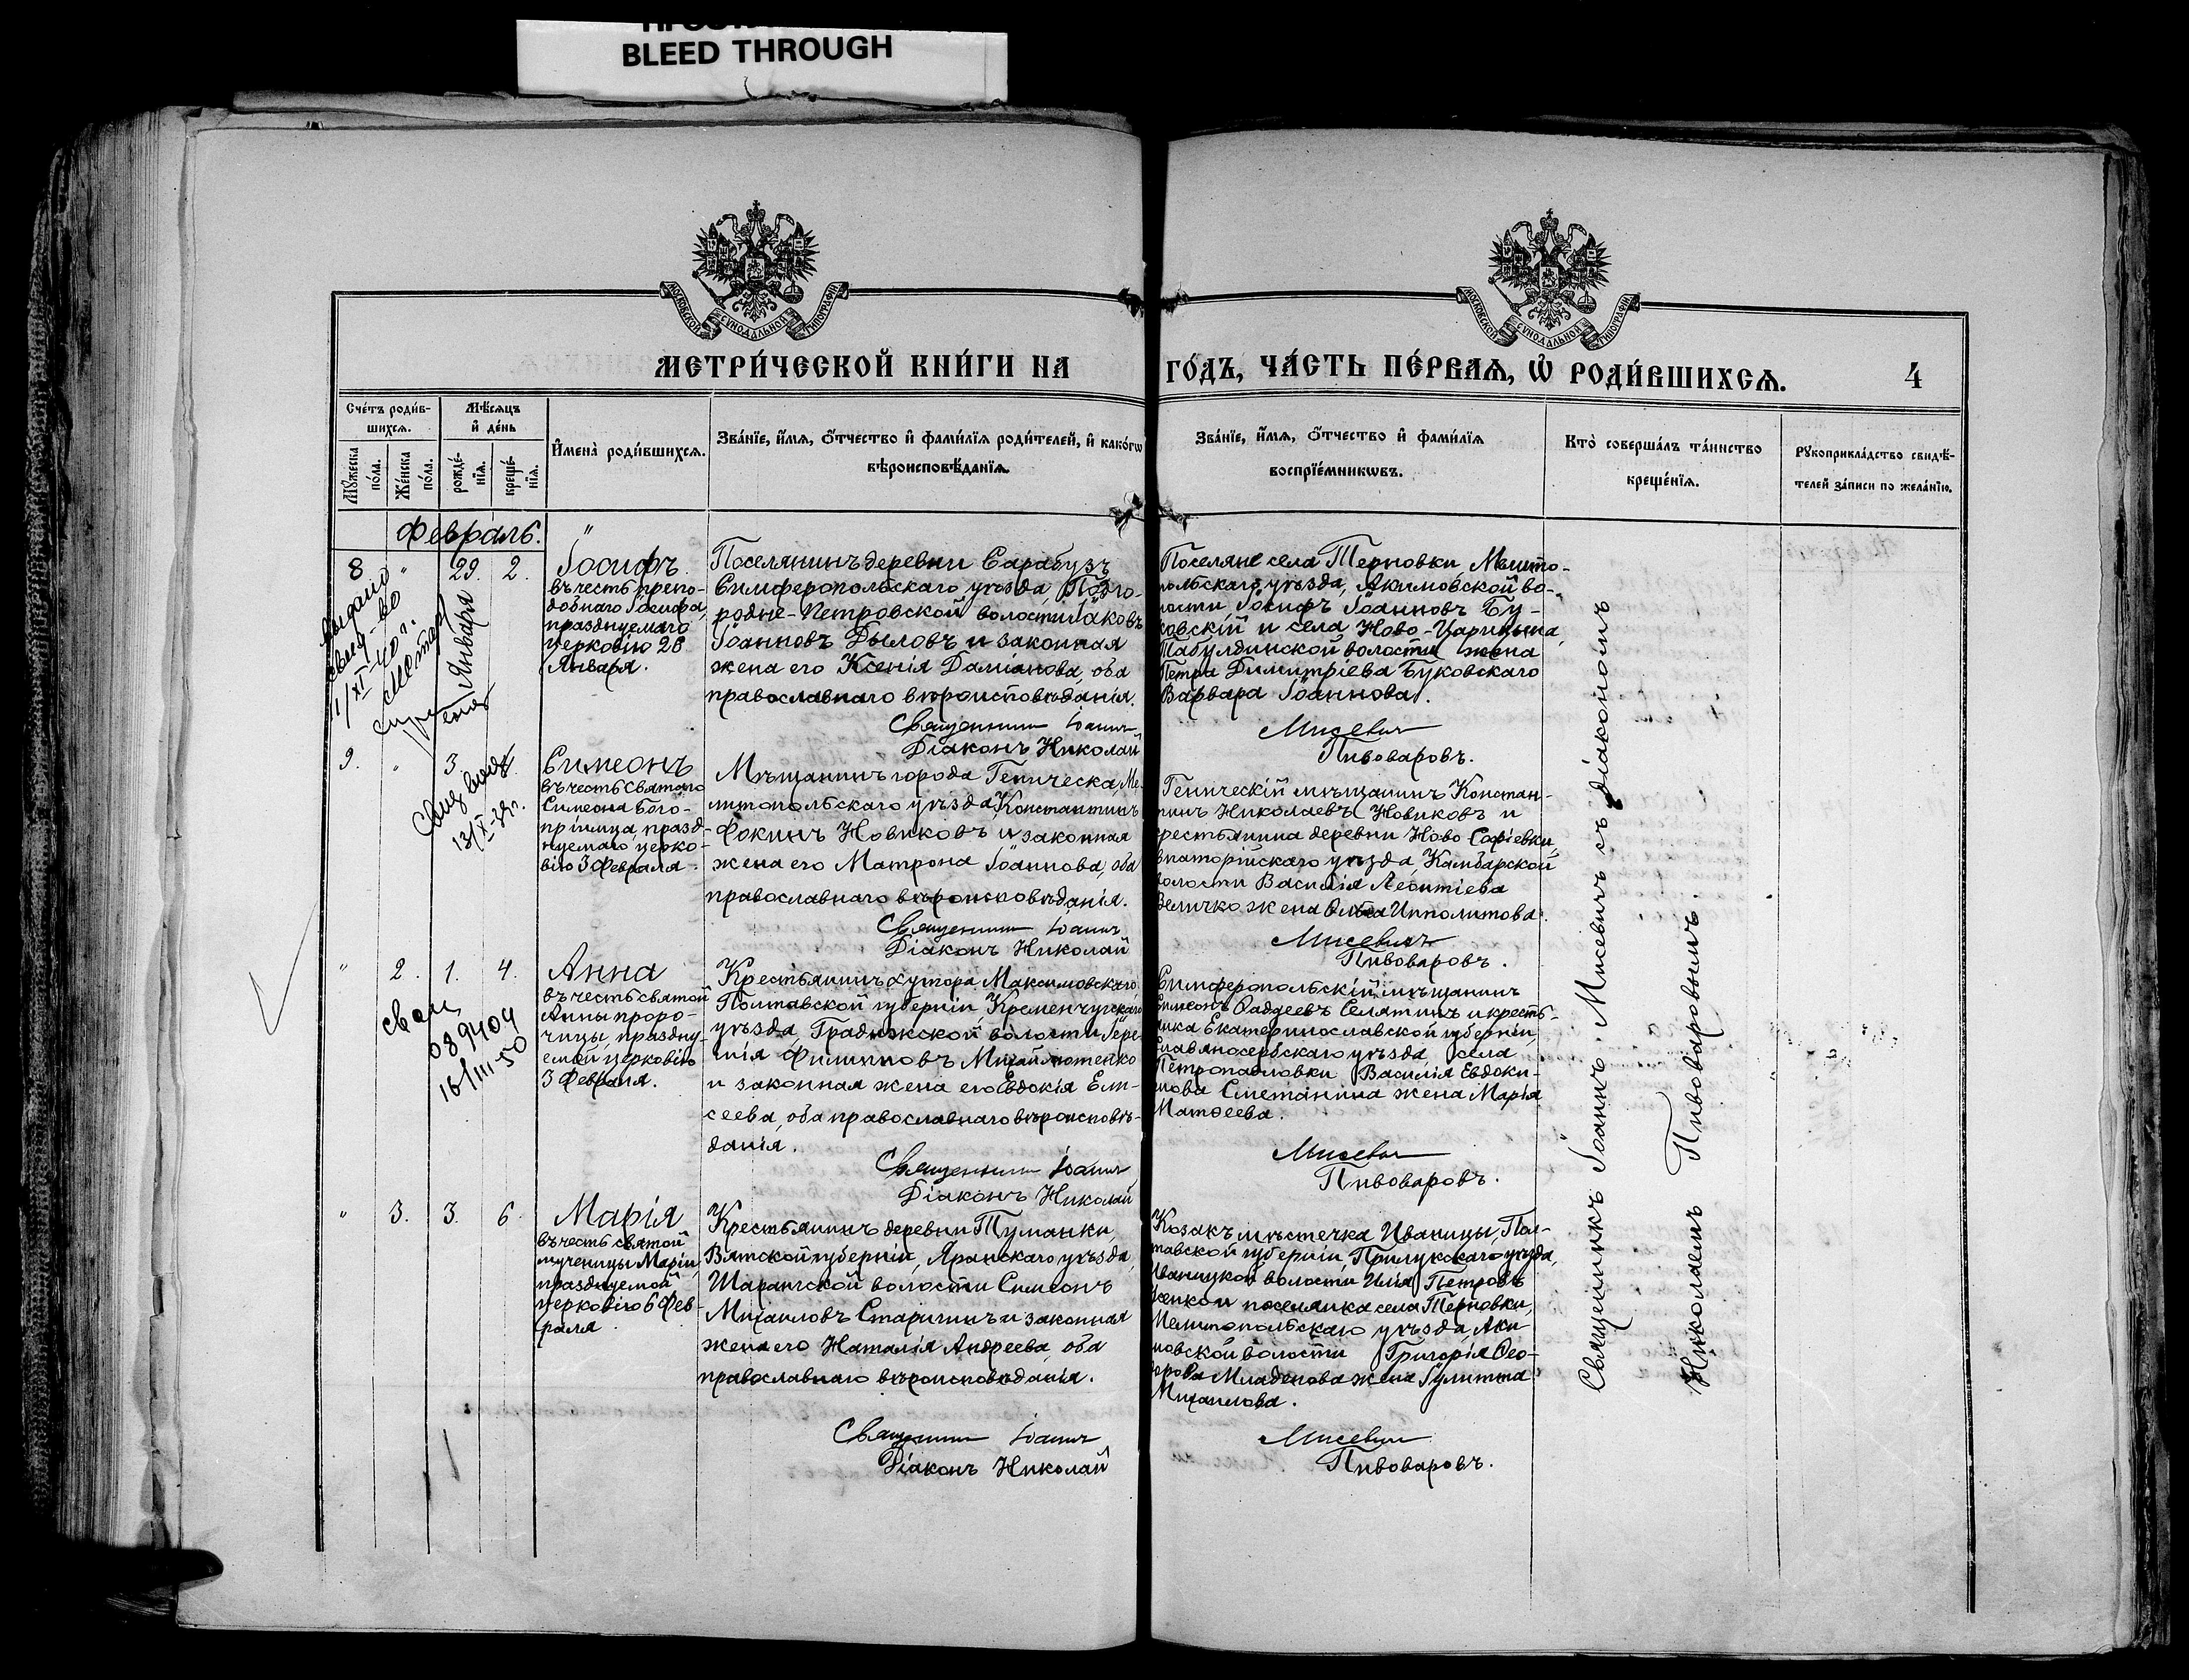 BLEED THROUGH
МОСКОВСКОЙ СѴНОДАЛЬНОЙ ТИПОГРАФІИ
МОСКОВСКОЙ СѴНОДАЛЬНОЙ ТИПОГРАФІИ
МЕТРИ́ЧЕСКОЙ КНИ́ГИ НА ГО́ДЪ, ЧА́СТЬ ПЕ́РВАѦ, Ѡ҆ РОДИ́ВШИХСѦ. 4
Сче́тъ роди́в-
шихсѧ.
Мѣ́сяцъ
и҆ де́нь
Мꙋ́жеска
по́ла.
Же́нска
по́ла.
рожде́-
нїѧ.
креще́-
нїѧ.
И҆мена̀ роди́вшихсѧ.
Зва́нїе, и҆́мѧ, ѻ҆́тчество и҆ фами́лїѧ роди́телей, и҆ како́гѡ
вѣроисповѣ́данїѧ.
Зва́нїе, и҆́мѧ, ѻ҆́тчество и҆ фами́лїѧ
воспрїе́мникѡвъ.
Кто̀ соверша́лъ та́инство
креще́нїѧ.
Рꙋкоприкла́дство свидѣ́-
телей за́писи по жела́нїю.
Февраль.
8 " 29. 2.
Января
Выдано
свид-во
11/XI-40 г.
Іосифъ
въ честь препо-
добнаго Іосифа,
празднуемаго
церковію 28
Января.
Поселянинъ деревни Сарабузъ
Симферопольскаго уѣзда, Подго-
родне-Петровской волости Іаковъ
Іоанновъ Дыловъ и законная
жена его Ксенія Даміанова, оба
православнаго вѣроисповѣданія.
Священникъ Іоаннъ
Діаконъ Николай
Поселяне села Терновки, Мелито-
польскаго уѣзда, Акимовской во-
лости Іосифъ Іоанновъ Бу-
ковскій и села Ново-Царицына,
Табулдинской волости жена
Петра Димитріева Буковскаго
Варвара Іоаннова.
Мисевичъ
Пивоваровъ.
9. " 3.
Симеонъ
въ честь Святаго
Симеона Бого-
пріимца, празд-
нуемаго церко-
вію 3 Февраля.
Мѣщанинъ города Геническа, Ме-
литопольскаго уѣзда, Константинъ
Фокинъ Новиковъ и законная
жена его Матрона Іоаннова, оба
православнаго вѣроисповѣданія.
Священникъ Іоаннъ
Діаконъ Николай
Геническій мѣщанинъ Констан-
тинъ Николаевъ Новиковъ и
крестьянина деревни Ново-Софіевки,
Евпаторійскаго уѣзда, Камбарской
волости Василія Леонтіева
Величко жена Ольга Ипполитова.
Мисевичъ
Пивоваровъ.
" 2. 1. 4.
089404
16/III 50
Анна
въ честь святой
Анны проро-
чицы, праздну-
емой церковію
3 Февраля.
Крестьянинъ хутора Максимовскаго
Полтавской губерніи, Кременчугскаго
уѣзда, Градижской волости Іере-
мія Филипповъ Михайлютенко
и законная жена его Евдокія Ели-
сеева, оба православнаго вѣроисповѣ-
данія.
Священникъ Іоаннъ
Діаконъ Николай
Симферопольскій мѣщанинъ
Симеонъ Ѳаддеевъ Селятинъ и кресть-
янка Екатеринославской губерніи,
Славяносербскаго уѣзда села
Петропавловки Василія Евдоки-
мова Сметанина жена Марія
Матѳеева.
Мисевичъ
Пивоваровъ.
" 3. 3. 6.
Марія
въ честь святой
мученицы Маріи,
празднуемой
церковію 6 Фев-
раля.
Крестьянинъ деревни Туманки,
Вятской губерніи, Яранскаго уѣзда,
Шарангской волости Симеонъ
Михаиловъ Старигинъ и законная
жена его Наталія Андреева, оба
православнаго вѣроисповѣданія.
Священникъ Іоаннъ
Діаконъ Николай
Козакъ мѣстечка Иваницы, Пол-
тавской губерніи, Прилукскаго уѣзда,
Иваницкой волости Илія Петровъ
поселянка села Терновки,
Мелитопольскаго уѣзда, Аки-
мовской волости Григорія Ѳео-
дорова Младенова жена Іулитта
Михаилова.
Мисевичъ
Пивоваровъ.
Священникъ Іоаннъ Мисевичъ съ діакономъ
Николаемъ Пивоваровымъ.